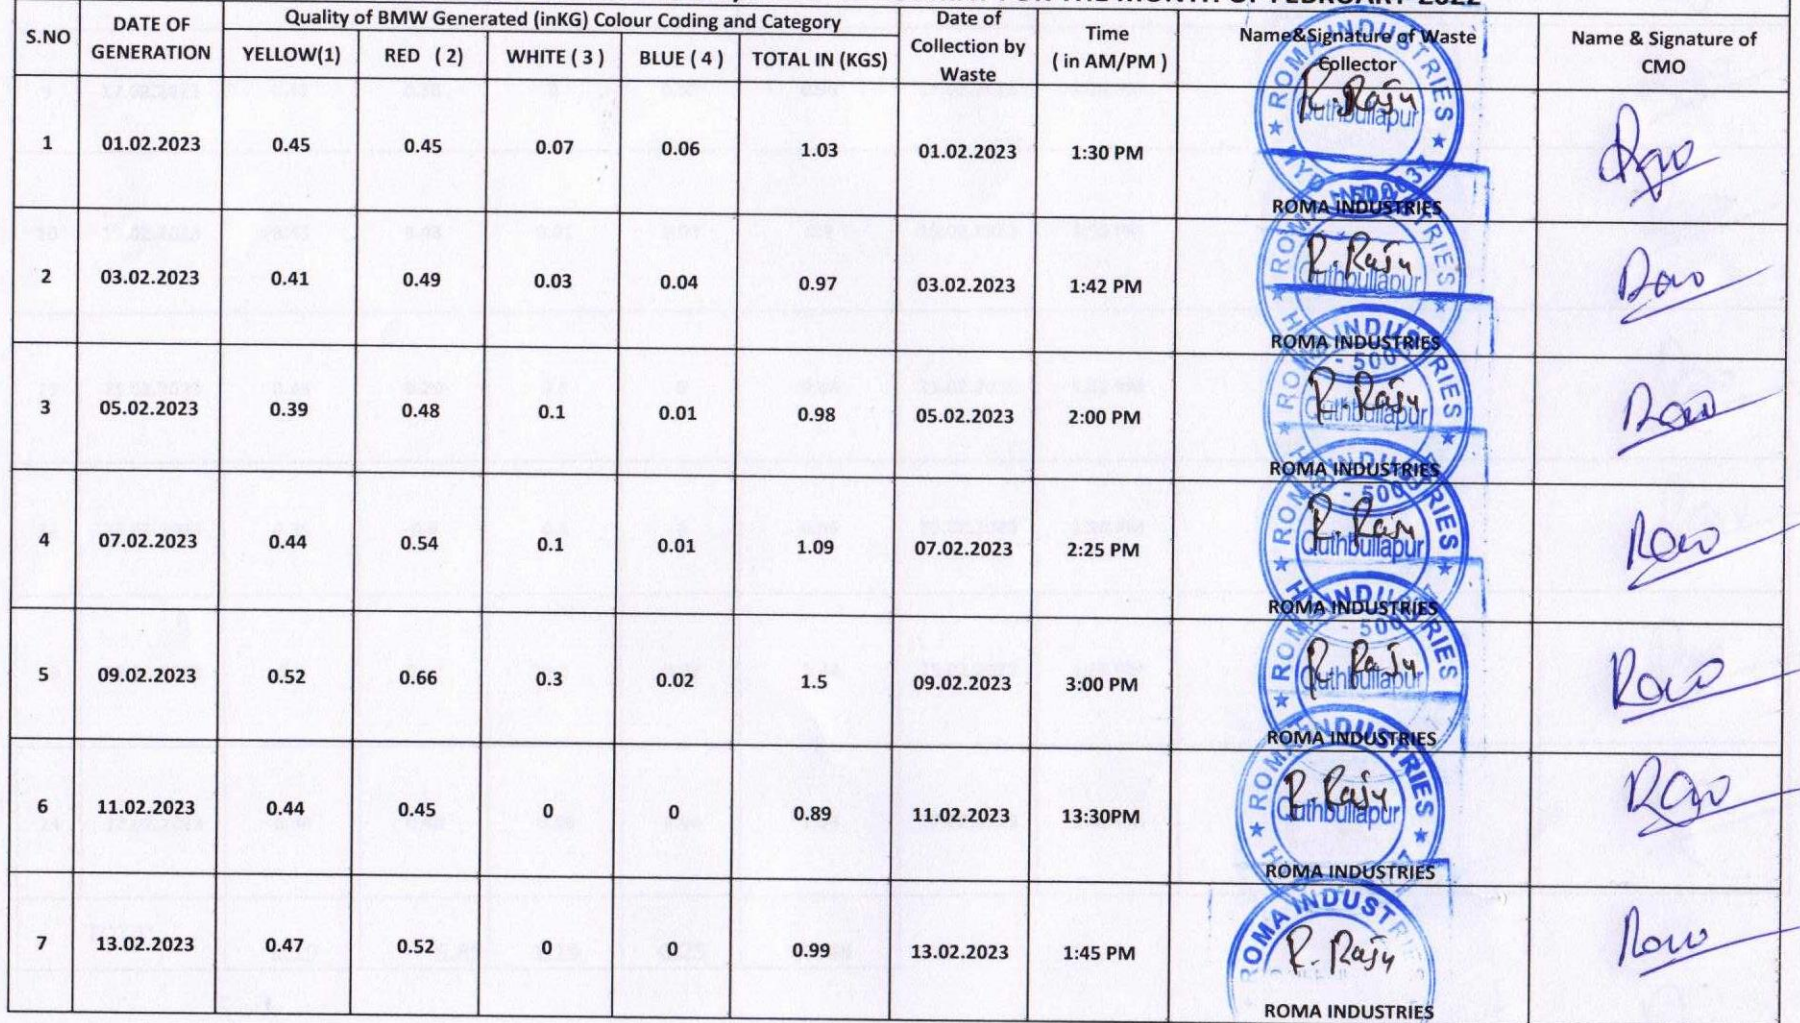 FOR THE MONTH OF FEBRUARY 2022
S.NO DATE OF GENERATION Quality of BMW Generated (inKG) Colour Coding and Category Date of Collection by Waste Time ( in AM/PM ) Name&Signature of Waste Collector Name & Signature of CMO
YELLOW(1) RED ( 2) WHITE ( 3 ) BLUE ( 4 ) TOTAL IN (KGS)
1 01.02.2023 0.45 0.45 0.07 0.06 1.03 01.02.2023 1:30 PM R. Raju ROMA INDUSTRIES Quthbullapur Rao
ROMA INDUSTRIES
2 03.02.2023 0.41 0.49 0.03 0.04 0.97 03.02.2023 1:42 PM R. Raju ROMA INDUSTRIES Quthbullapur Rao
ROMA INDUSTRIES
3 05.02.2023 0.39 0.48 0.1 0.01 0.98 05.02.2023 2:00 PM R. Raju ROMA INDUSTRIES Quthbullapur Rao
ROMA INDUSTRIES
4 07.02.2023 0.44 0.54 0.1 0.01 1.09 07.02.2023 2:25 PM R. Raju ROMA INDUSTRIES Quthbullapur Rao
ROMA INDUSTRIES
5 09.02.2023 0.52 0.66 0.3 0.02 1.5 09.02.2023 3:00 PM R. Raju ROMA INDUSTRIES Quthbullapur Rao
ROMA INDUSTRIES
6 11.02.2023 0.44 0.45 0 0 0.89 11.02.2023 13:30PM R. Raju ROMA INDUSTRIES Quthbullapur Rao
ROMA INDUSTRIES
7 13.02.2023 0.47 0.52 0 0.99 13.02.2023 1:45 PM R. Raju ROMA INDUSTRIES Rao
ROMA INDUSTRIES